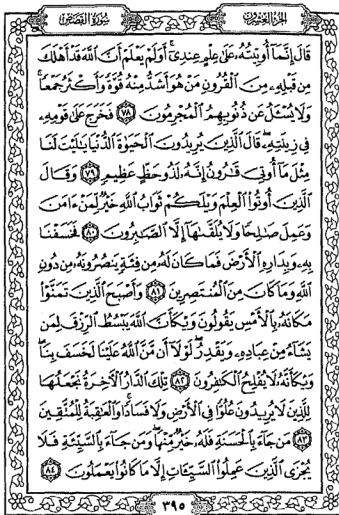 الجزء العشرون سورة القصص
قَالَ إِنَّمَآ أُوتِيتُهُۥ عَلَىٰ عِلْمٍ عِندِىٓ ۚ أَوَلَمْ يَعْلَمْ أَنَّ ٱللَّهَ قَدْ أَهْلَكَ
مِن قَبْلِهِۦ مِنَ ٱلْقُرُونِ مَنْ هُوَ أَشَدُّ مِنْهُ قُوَّةً وَأَكْثَرُ جَمْعًا ۚ
وَلَا يُسْـَٔلُ عَن ذُنُوبِهِمُ ٱلْمُجْرِمُونَ ٧٨ فَخَرَجَ عَلَىٰ قَوْمِهِۦ
فِى زِينَتِهِۦ ۖ قَالَ ٱلَّذِينَ يُرِيدُونَ ٱلْحَيَوٰةَ ٱلدُّنْيَا يَـٰلَيْتَ لَنَا
مِثْلَ مَآ أُوتِىَ قَـٰرُونُ إِنَّهُۥ لَذُو حَظٍّ عَظِيمٍ ٧٩ وَقَالَ
ٱلَّذِينَ أُوتُوا۟ ٱلْعِلْمَ وَيْلَكُمْ ثَوَابُ ٱللَّهِ خَيْرٌ لِّمَنْ ءَامَنَ
وَعَمِلَ صَـٰلِحًا وَلَا يُلَقَّىٰهَآ إِلَّا ٱلصَّـٰبِرُونَ ٨٠ فَخَسَفْنَا
بِهِۦ وَبِدَارِهِ ٱلْأَرْضَ فَمَا كَانَ لَهُۥ مِن فِئَةٍ يَنصُرُونَهُۥ مِن دُونِ
ٱللَّهِ وَمَا كَانَ مِنَ ٱلْمُنتَصِرِينَ ٨١ وَأَصْبَحَ ٱلَّذِينَ تَمَنَّوْا۟
مَكَانَهُۥ بِٱلْأَمْسِ يَقُولُونَ وَيْكَأَنَّ ٱللَّهَ يَبْسُطُ ٱلرِّزْقَ لِمَن
يَشَآءُ مِنْ عِبَادِهِۦ وَيَقْدِرُ ۖ لَوْلَآ أَن مَّنَّ ٱللَّهُ عَلَيْنَا لَخَسَفَ بِنَا ۖ
وَيْكَأَنَّهُۥ لَا يُفْلِحُ ٱلْكَـٰفِرُونَ ٨٢ تِلْكَ ٱلدَّارُ ٱلْـَٔاخِرَةُ نَجْعَلُهَا
لِلَّذِينَ لَا يُرِيدُونَ عُلُوًّا فِى ٱلْأَرْضِ وَلَا فَسَادًا ۚ وَٱلْعَـٰقِبَةُ لِلْمُتَّقِينَ
٨٣ مَن جَآءَ بِٱلْحَسَنَةِ فَلَهُۥ خَيْرٌ مِّنْهَا ۖ وَمَن جَآءَ بِٱلسَّيِّئَةِ فَلَا
يُجْزَى ٱلَّذِينَ عَمِلُوا۟ ٱلسَّيِّـَٔاتِ إِلَّا مَا كَانُوا۟ يَعْمَلُونَ ٨٤
٣٩٥